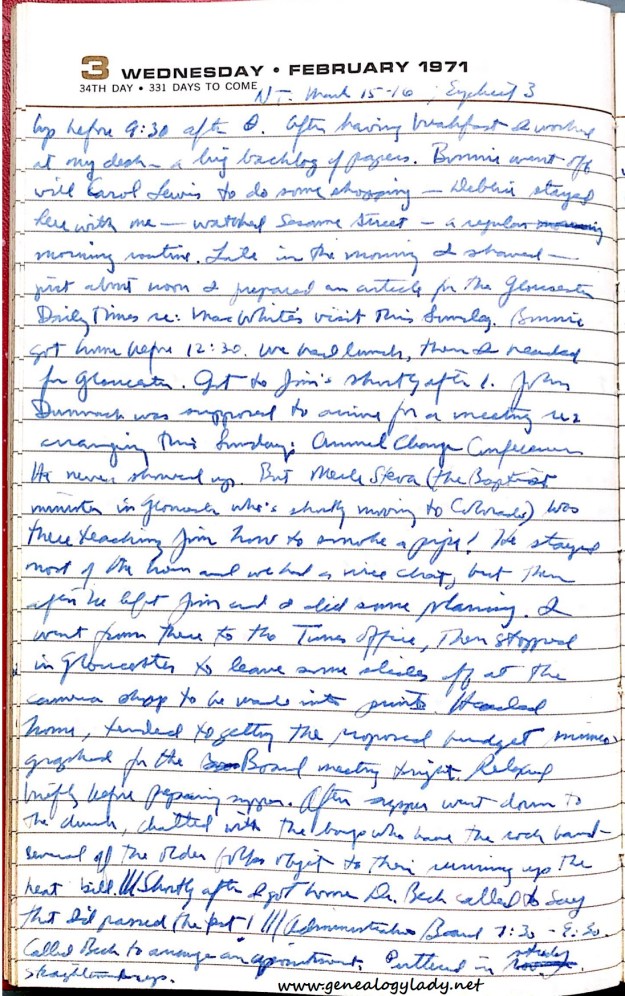 3 WEDNESDAY • FEBRUARY 1971
34TH DAY • 331 DAYS TO COME
N.T. Mark 15-16; Ezekiel 3
Up before 9:30 after θ. After having breakfast I worked
at my desk – a big backlog of papers. Bonnie went off
will Carol Lewis to do some shopping – Debbie stayed
here with me – watched Sesame Street – a regular
morning routine. Late in the morning I shaved –
just about noon I prepared an article for the Gloucester
Daily Times re: Max White's visit this Sunday. Bonnie
got home before 12:30. We had lunch, then I headed
for Gloucester. Got to Jim's shortly after 1. John
was supposed to arrive for a meeting re:
arranging this Sunday's Annual Change Conference
He never showed up. But Merle (the Baptist
minister in Gloucester who's shortly moving to Colorado) was
there teaching Jim how to smoke a pipe! He stayed
most of the hour and we had a nice chat, but then
after he left Jim and I did some planning. I
went from there to the Times office, then stopped
in Gloucester to leave some slides off at the
camera shop to be made into prints. Headed
home, tended to getting the proposed budget mimeo
graphed for the Board meeting tonight. Relaxed
briefly before preparing supper. After supper went down to
the church, chatted with the boys who have the rock band –
several of the older folks object to their running up the
heat bill. /// Shortly after I got home Dr. Beck called to say
that did passed the test! /// Administrative Board 7:30 - 9:30.
Called Beck to arrange an appointment. Puttered in study
straightened up.
www.genealogylady.net